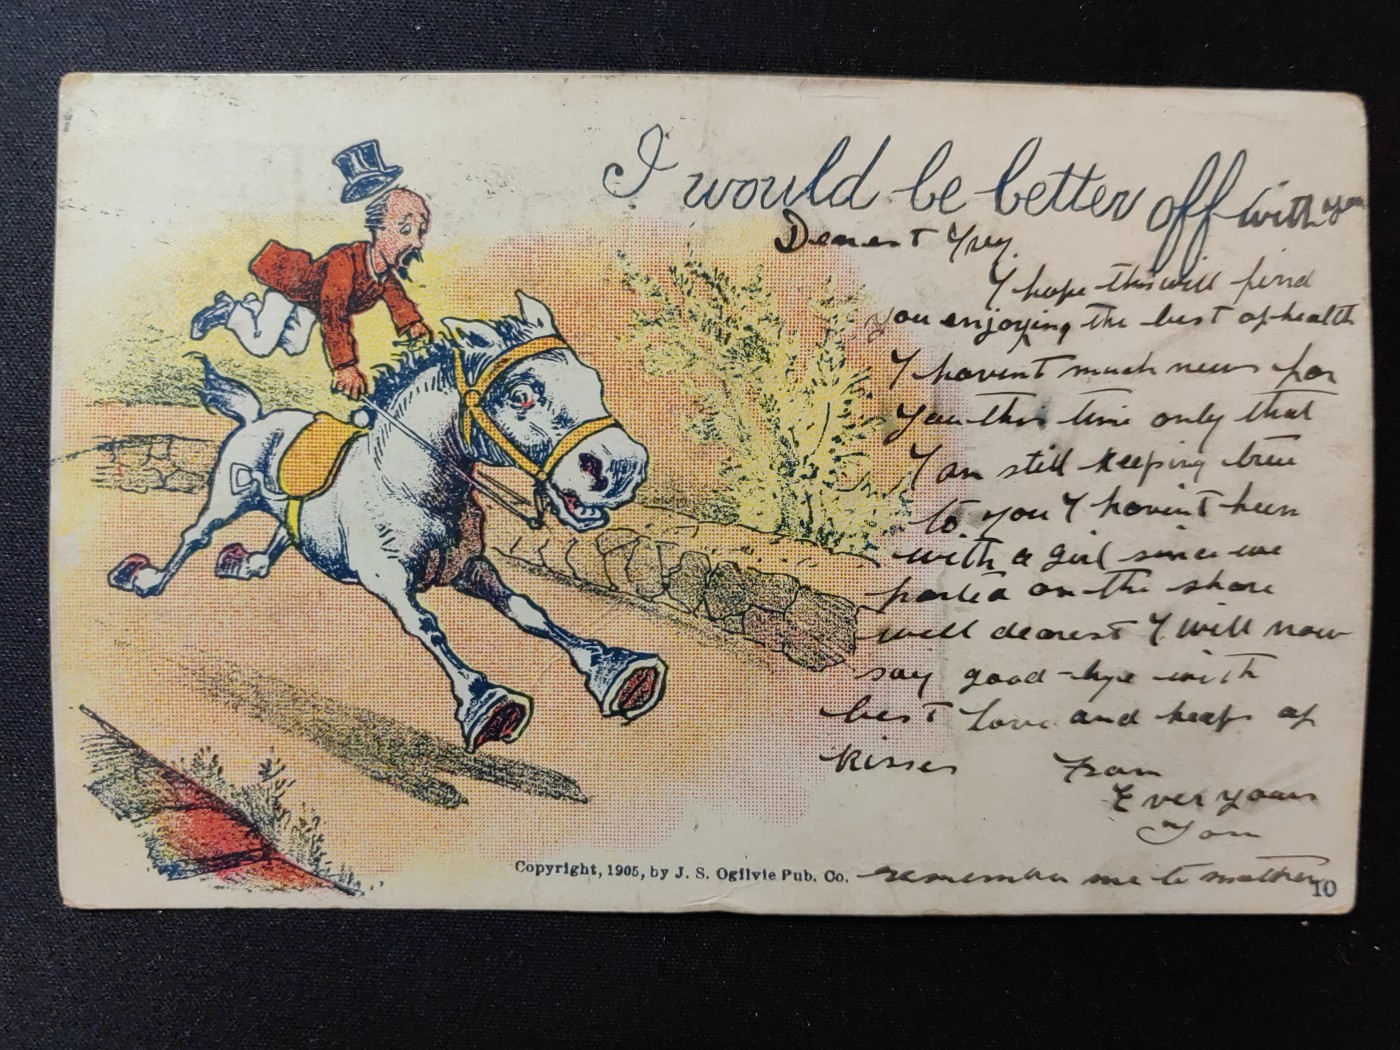 I would be better off with you
Dearest
I hope this will find
you enjoying the best of health
I havent much news for
you this time only that
I am still keeping true
to you I havent been
with a girl since we
parted on the shore
well dearest I will now
say good-bye with
best love and heaps of
kisses From
Ever yours
remember me to mother
Copyright, 1905, by J. S. Ogilvie Pub. Co.
10